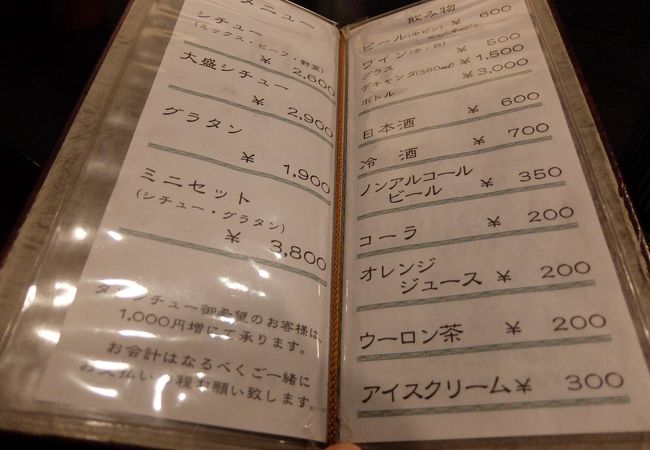 メニュー
シチュー
(ミックス・ビーフ・野菜)
¥ 2,600
大盛シチュー
¥ 2,900
グラタン
¥ 1,900
ミニセット
(シチュー・グラタン)
¥ 3,800
シチュー御希望のお客様は、
1,000円増にて承ります。
お会計はなるべくご一緒に
お支払い 程お願い致します。
飲み物
ビール(中ビン) ¥ 600
ワイン(赤・白)
グラス ¥ 500
デキャンタ(360ml) ¥ 1,500
ボトル ¥ 3,000
日本酒 ¥ 600
冷 酒 ¥ 700
ノンアルコール
ビール ¥ 350
コーラ ¥ 200
オレンジ
ジュース ¥ 200
ウーロン茶 ¥ 200
アイスクリーム ¥ 300